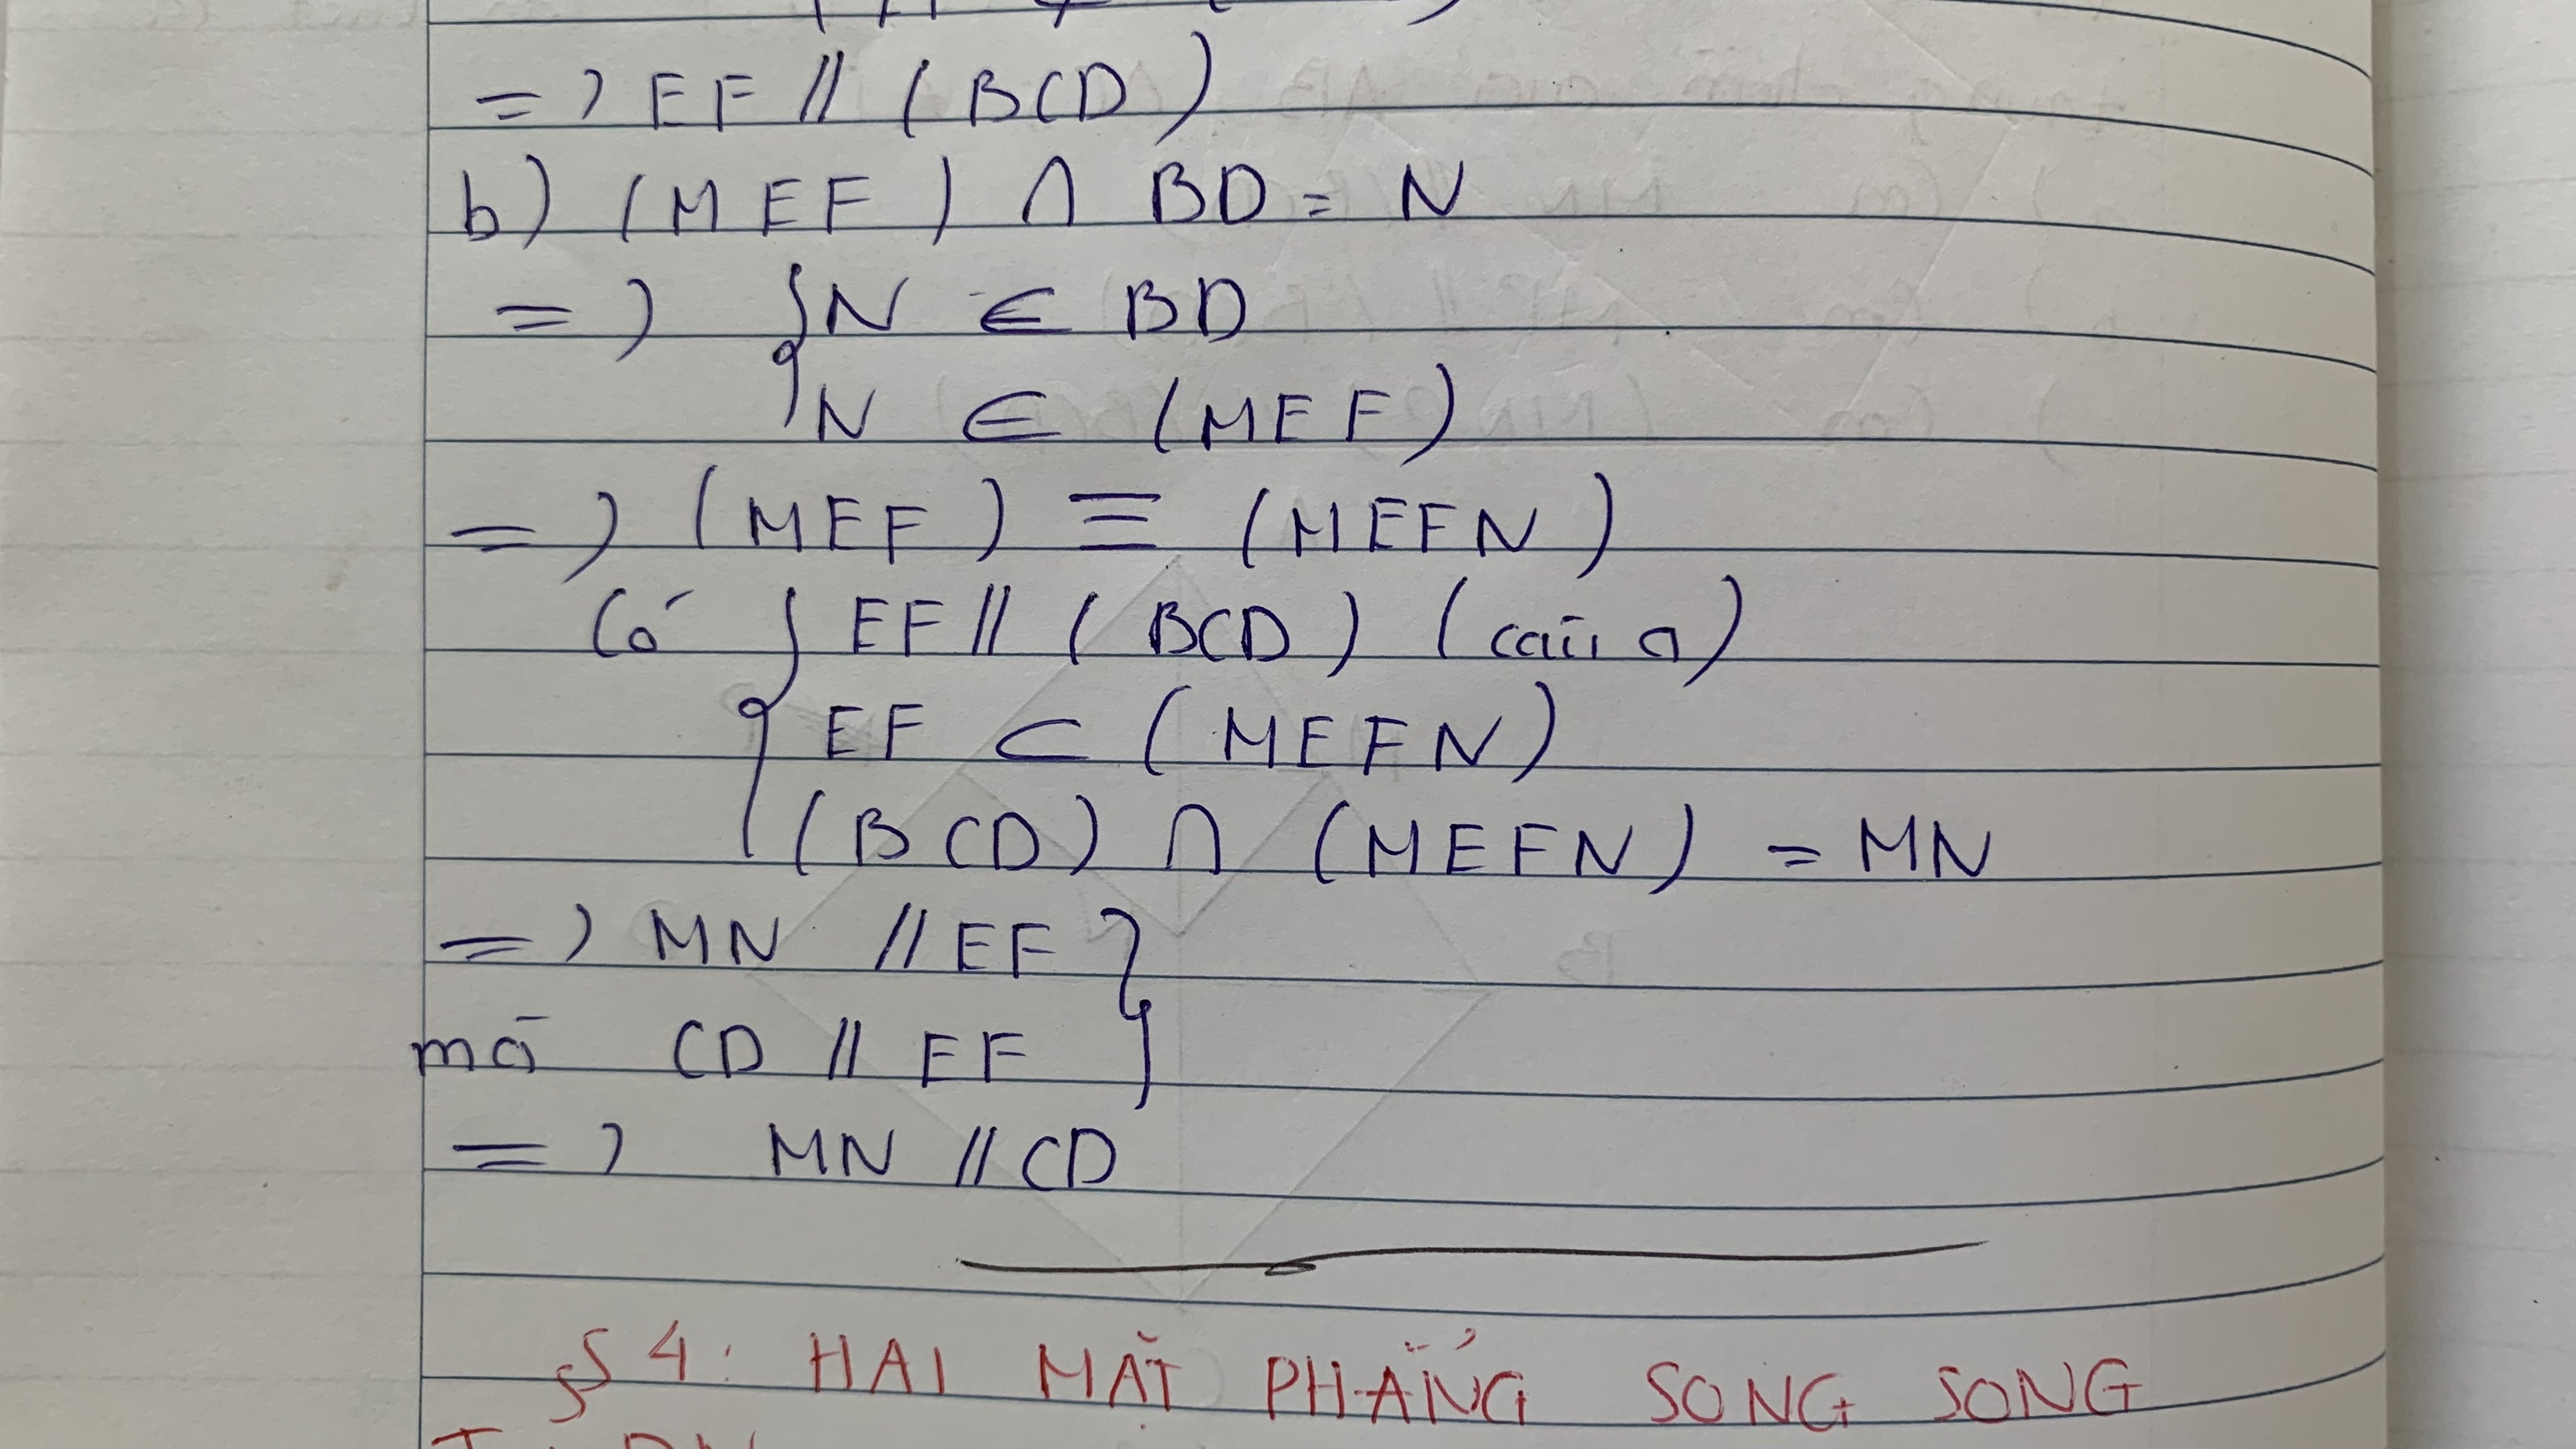 => EF // (BCD)
b) (MEF) ∩ BD = N
=> { N ∈ BD
N ∈ (MEF)
=> (MEF) ≡ (MEFN)
Có { EF // (BCD) (câu a)
EF ⊂ (MEFN)
(BCD) ∩ (MEFN) = MN
=> MN // EF }
mà CD // EF
=> MN // CD
§4: HAI MẶT PHẲNG SONG SONG